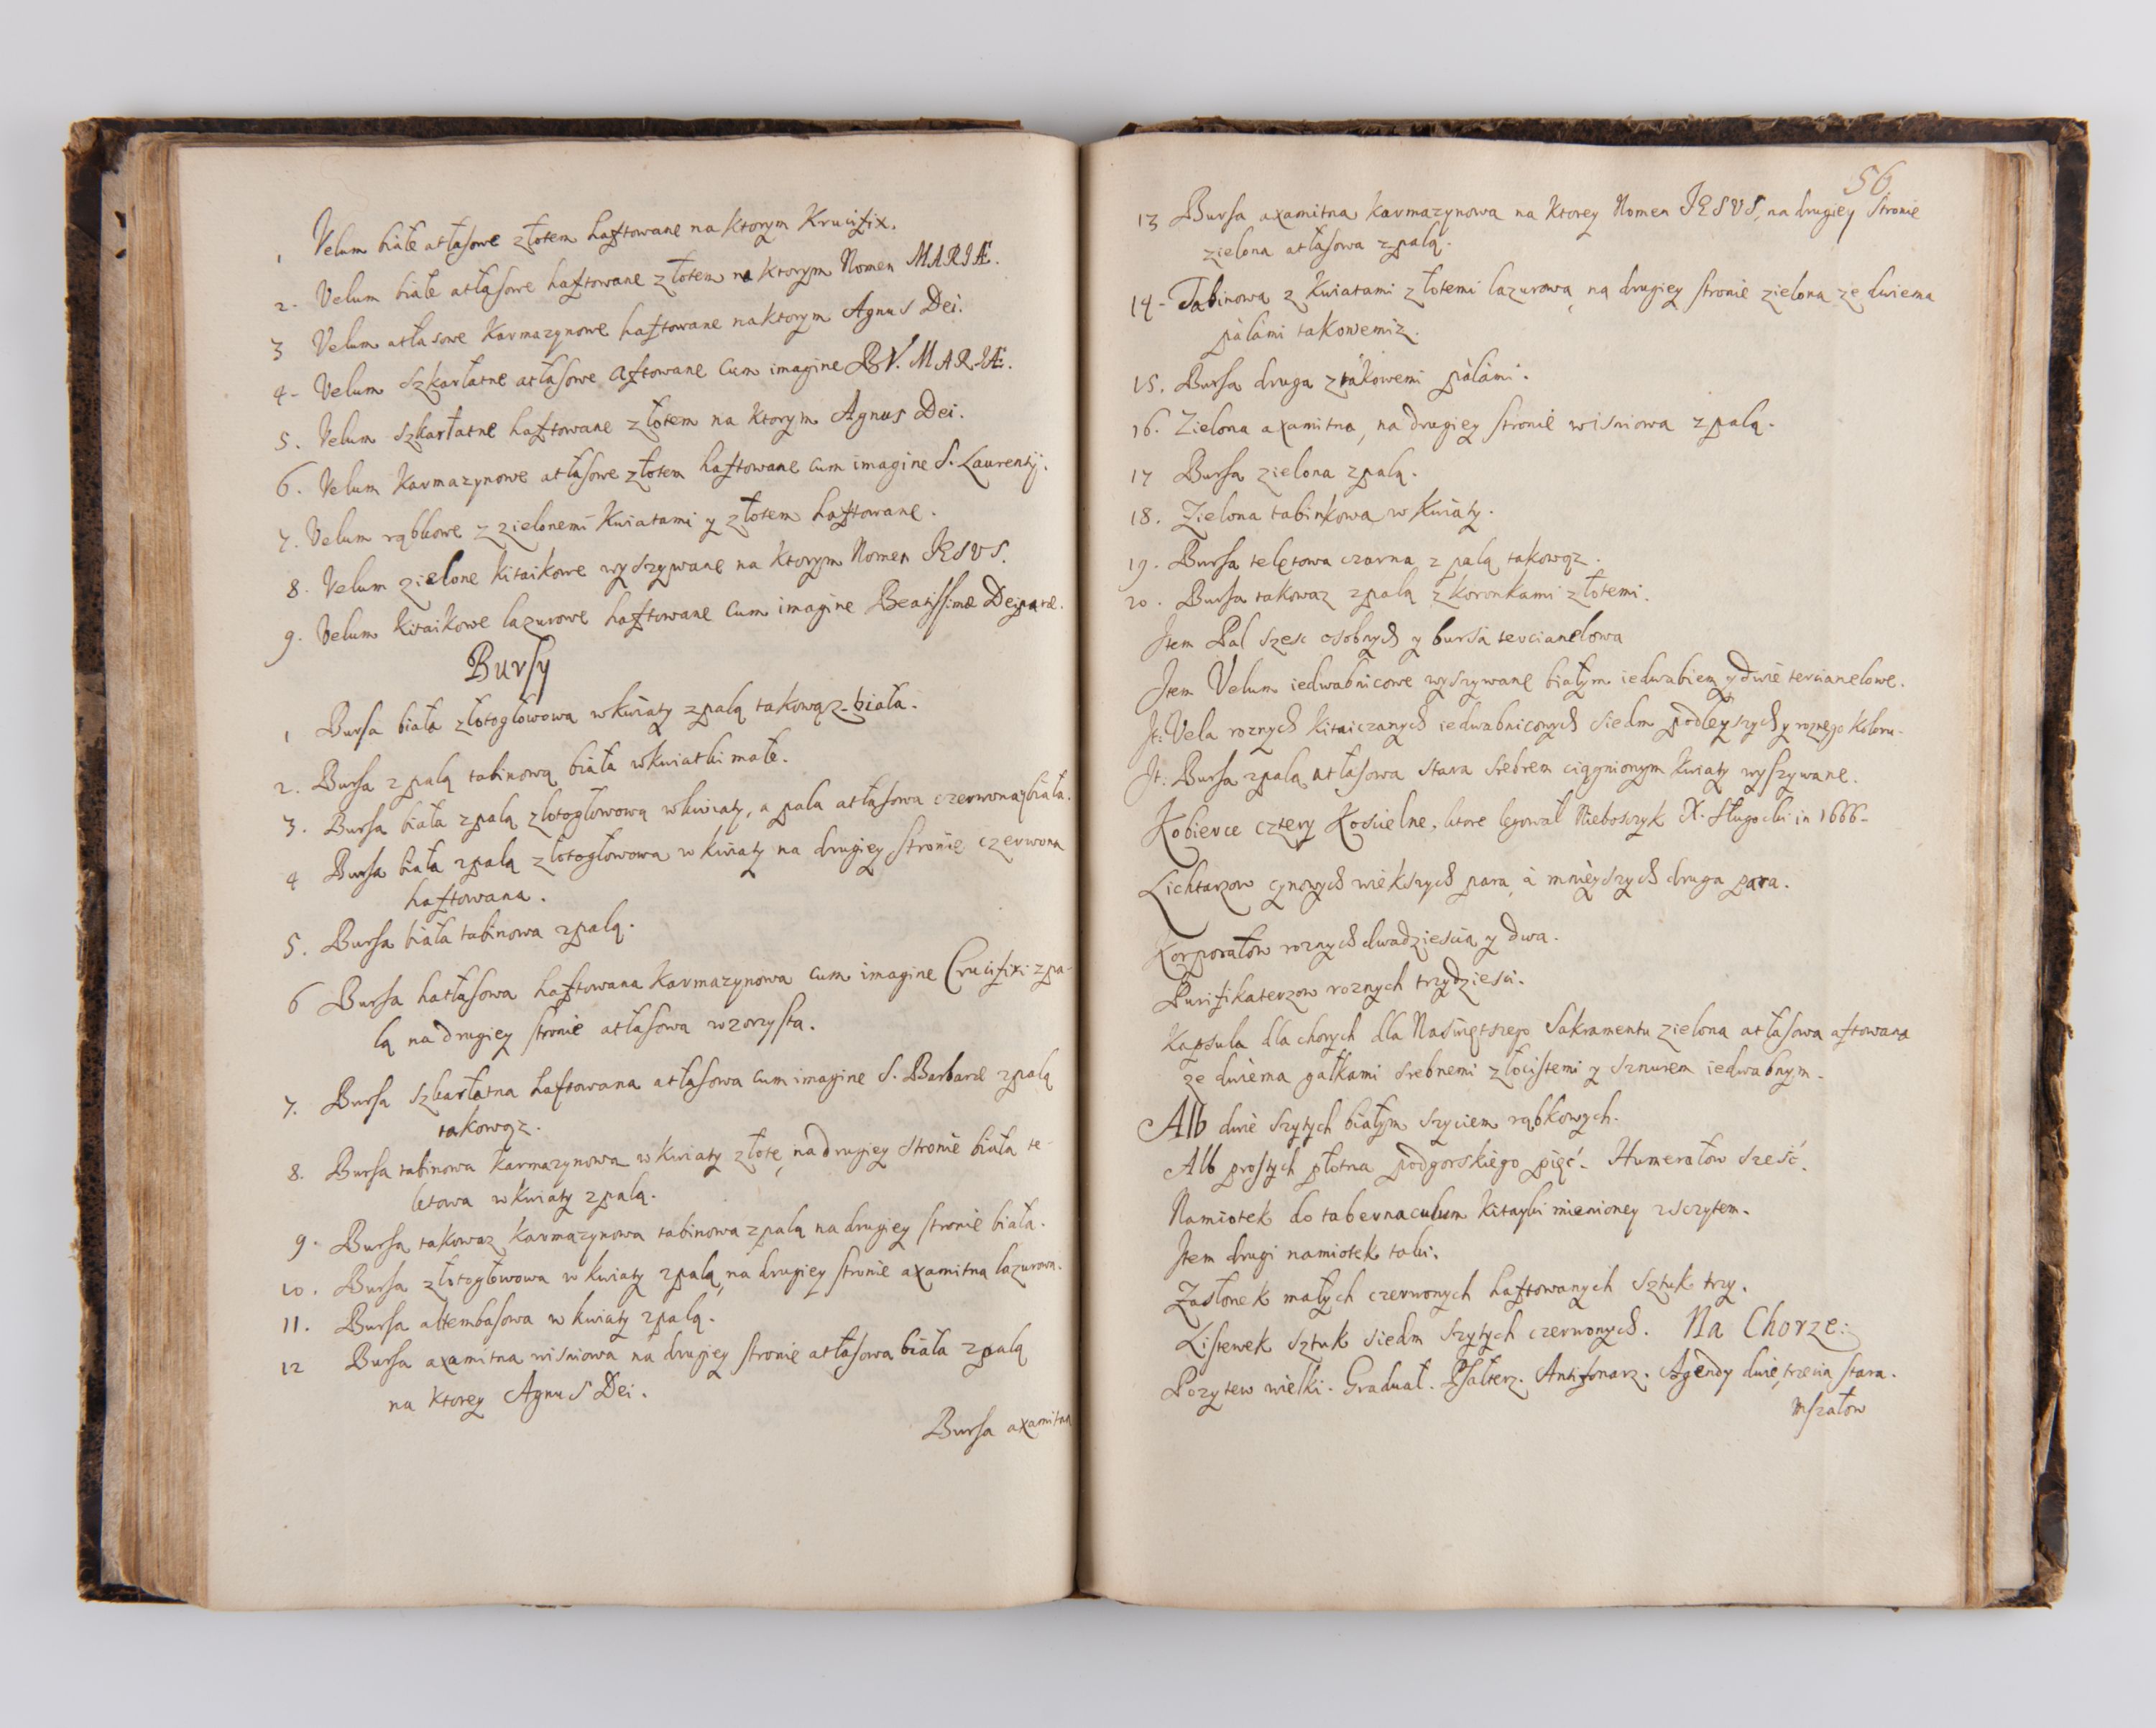 1 Velum białe atłasowe złotem haftowane na ktorym Krucifix.
2. Velum białe atłasowe haftowane złotem na ktorym Nomen MARIÆ.
3 Velum atłasowe Karmazynowe haftowane na ktorym Agnus Dei.
4. Velum szkarłatne atłasowe aftowane cum imagine B.V. MARIÆ.
5. Velum szkarłatne haftowane złotem na ktorym Agnus Dei.
6. Velum Karmazynowe atłasowe złotem haftowane cum imagine S. Laurentij.
7. Velum rąbkowe z zielonemi Kwiatami y złotem haftowane.
8. Velum zielone kitaikowe wyszywane na ktorym Nomen IESVS.
9. Velum kitaikowe lazurowe haftowane cum imagine Beatissimæ Deiparæ.
Bursy
1 Bursa biała złotogłowowa w kwiaty z palą takowąz biała.
2. Bursa z palą tabinową biała w kwiatki małe.
3. Bursa biała z palą złotogłowową w kwiaty, a pala atłasowa czerwona y biała.
4 Bursa biała z palą złotogłowowa w kwiaty na drugiey stronie czerwona
haftowana.
5. Bursa biała tabinowa z palą.
6 Bursa hatłasowa haftowana Karmazynowa cum imagine Crucifixi z pa-
lą na drugiey stronie atłasowa wzorzysta.
7. Bursa szkarłatna haftowana atłasowa cum imagine S. Barbaræ z palą
takowąz.
8. Bursa tabinowa karmazynowa w kwiaty złote, na drugiey stronie biała te-
letowa w kwiaty z palą.
9. Bursa takowaz karmazynowa tabinowa z palą na drugiey stronie biała.
10. Bursa złotogłowowa w kwiaty z palą, na drugiey stronie axamitna lazurowa.
11. Bursa altembasowa w kwiaty z palą.
12 Bursa axamitna wisniowa na drugiey stronie atłasowa biała z palą
na ktorey Agnus Dei.
Bursa axamitna
56
13 Bursa axamitna karmazynowa na ktorey Nomen IESVS, na drugiey stronie
zielona atłasowa z palą.
14. Tabinowa z kwiatami złotemi lazurowa, na drugiey stronie zielona ze dwiema
palami takowemiz.
15. Bursa druga z takowemi palami.
16. Zielona axamitna, na drugiey stronie wisniowa z palą.
17 Bursa zielona z palą.
18. Zielona tabinkowa w kwiaty.
19. Bursa teletowa czarna z palą takowąz.
20. Bursa takowaz z palą z koronkami złotemi.
Item Pal szesc osobnych y bursa tercianelowa
Item Velum iedwabnicowe wyszywane białym iedwabiem y dwie tercianelowe.
It: Vela roznych kitaiczanych iedwabnicowych siedm podleyszych y roznego koloru.
It: Bursa z palą atłasowa stara srebrem ciągnionym kwiaty wyszywane.
Kobierce cztery Koscielne, ktore legował Nieboszczyk X. Długocki in 1666.
Lichtarzow cynowych wiekszych para, a mnieyszych druga para.
Korporałow roznych dwadziescia y dwa.
Purifikaterzow roznych trzydziesci.
Kapsula dla chorych dla Naswiętszego Sakramentu zielona atłasowa aftowana
ze dwiema gałkami srebnemi złocistemi y sznurem iedwabnym.
Alb dwie szytych białym szyciem rąbkowych.
Alb prostych płotna podgorskiego pięć. Humerałow sześć.
Namiotek do tabernaculum kitayki mienioney z sczytem.
Item drugi namiotek taki.
Zasłonek małych czerwonych haftowanych sztuk trzy.
Listewek sztuk siedm szytych czerwonych. Na Chorze:
Pozytew wielki. Graduał. Psałterz. Antifonarz. Agendy dwie, trzecia stara.
Mszałow